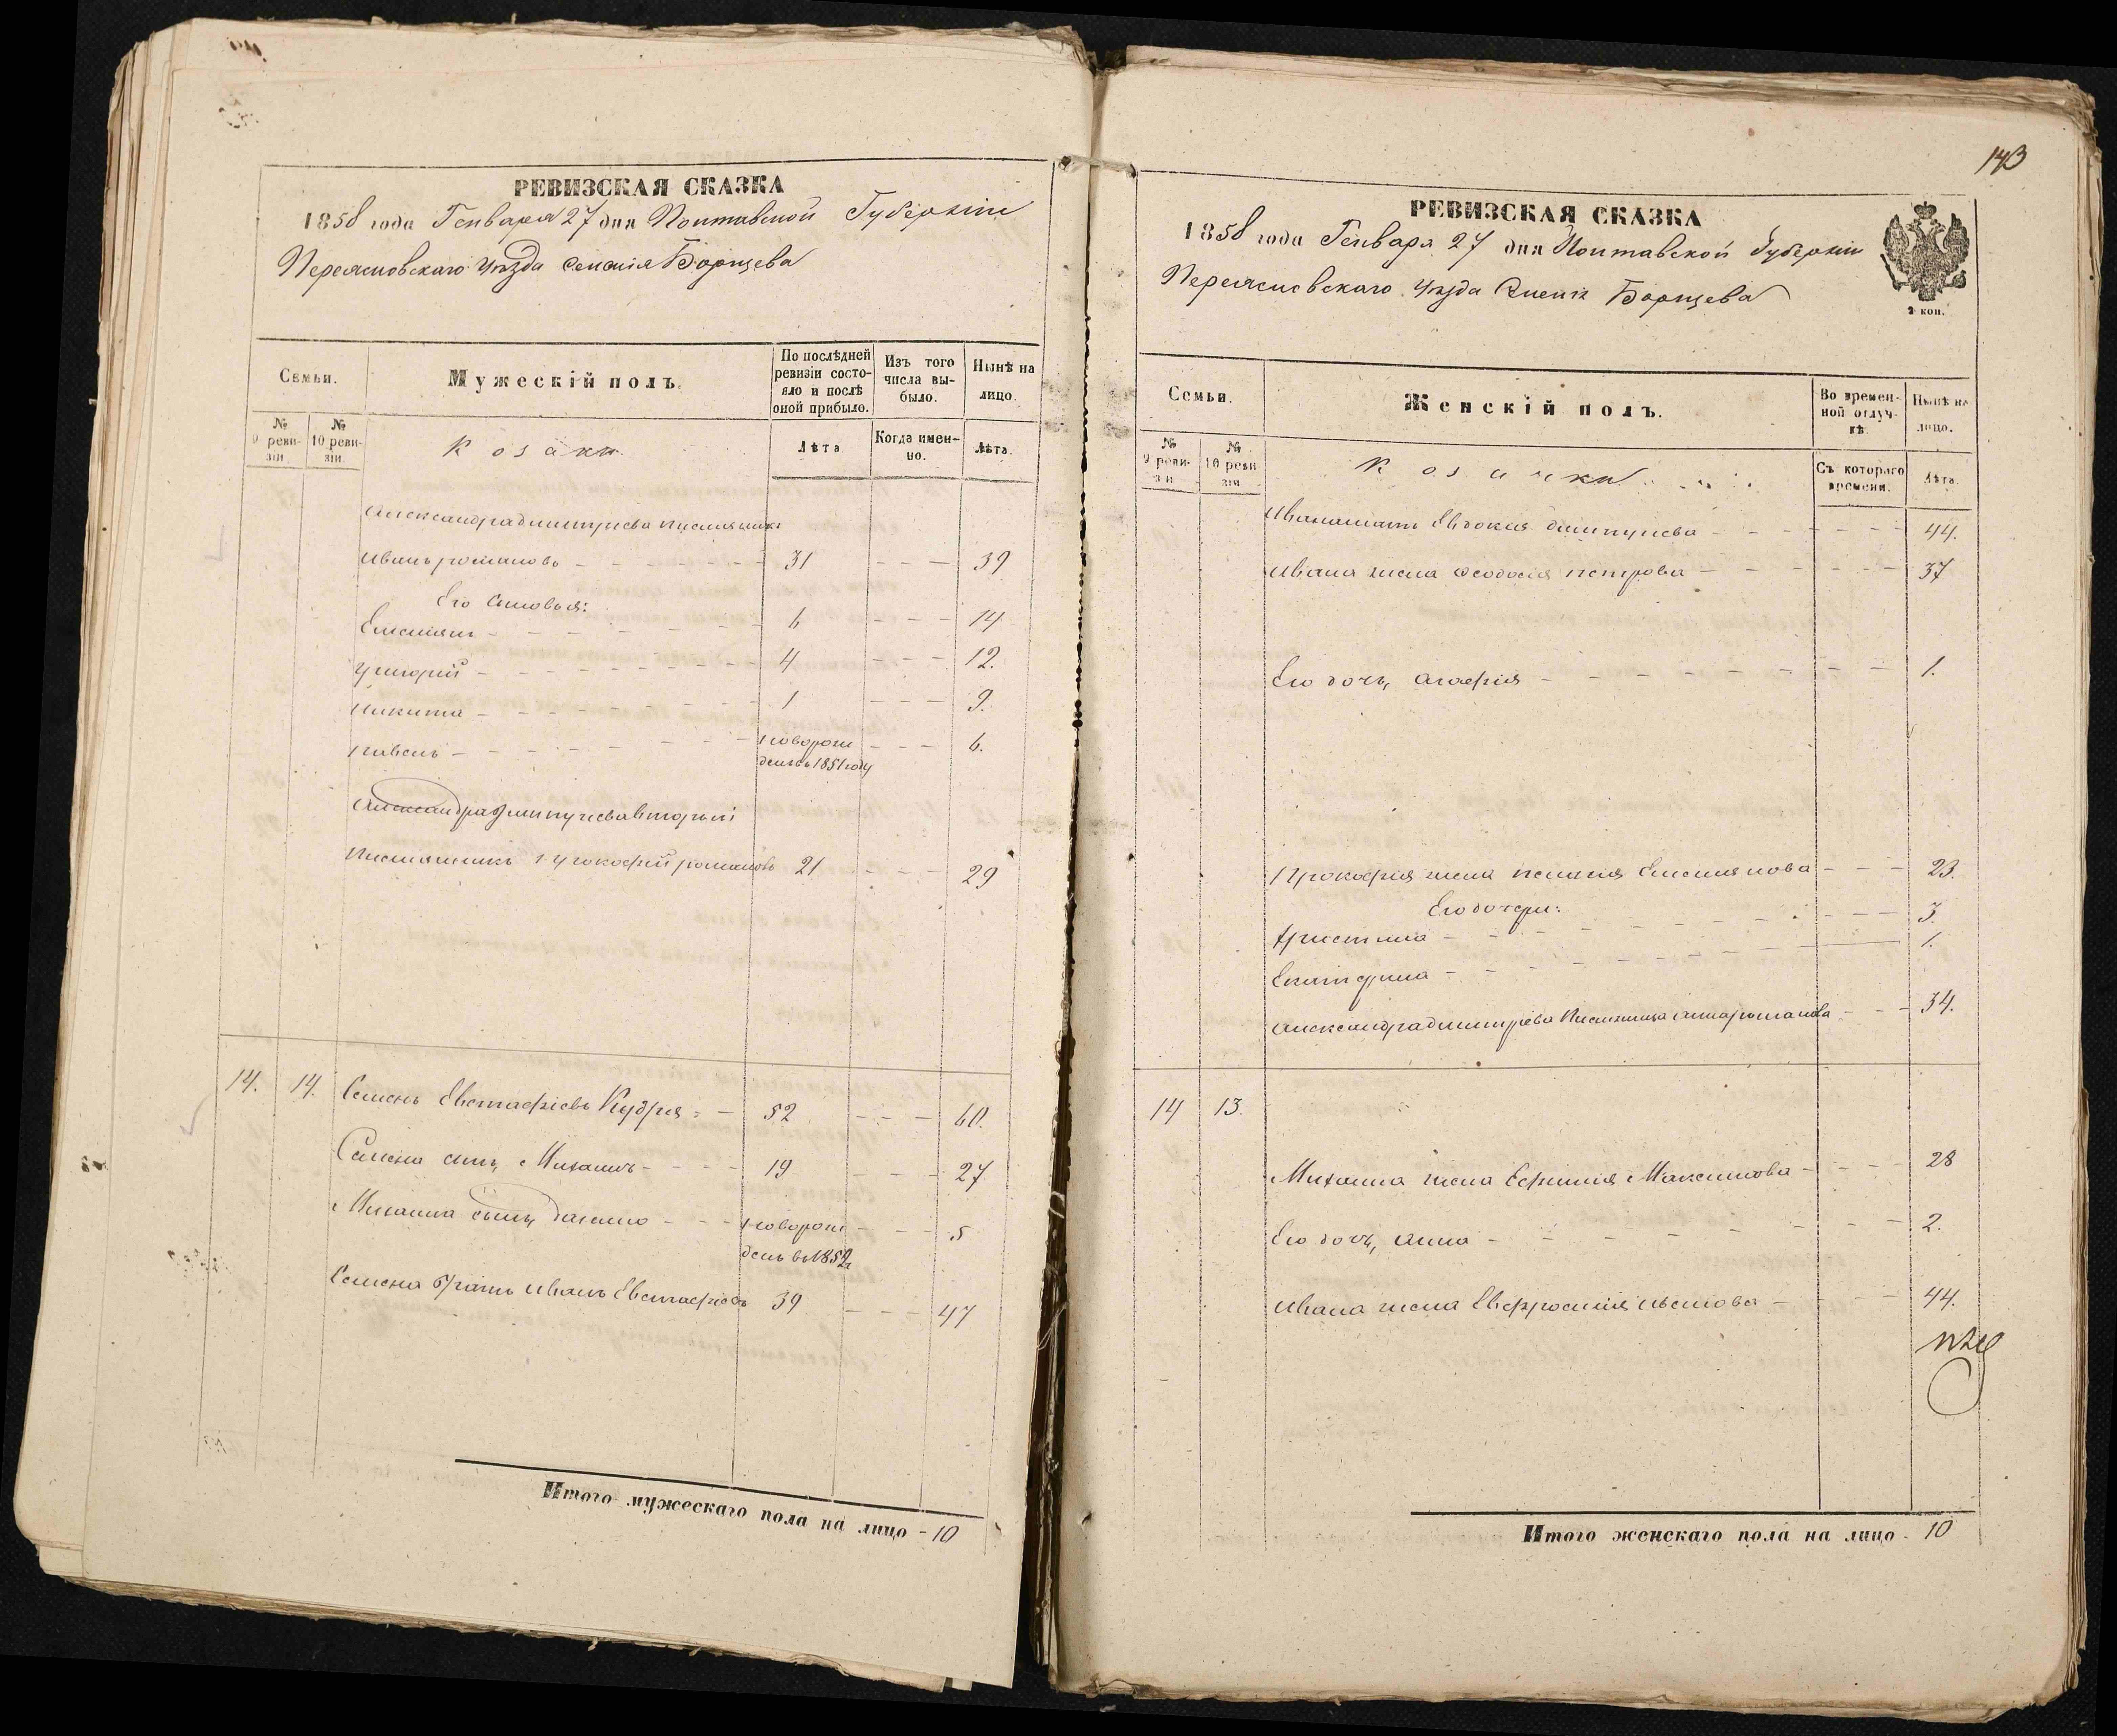 РЕВИЗСКАЯ СКАЗКА
1858 года Генваря 27 дня Полтавской Губерніи
Переяславскаго уѣзда селенія Борщева
Семьи.
Мужескій полъ.
По послѣдней ревизіи состояло и послѣ оной прибыло.
Изъ того числа выбыло.
Нынѣ на лицо.
№ 9 ревизіи.
№ 10 ревизіи.
Козаки
Лѣта
Когда именно.
Лѣта.
Александра дмитріева племянникъ
Иванъ романовъ - - - 31 - - - 39
Его сыновья:
Емельянъ - - - 6 - - - 14
Григорій - - - 4 - - - 12.
Никита - - - 1 - - - 9.
Павелъ - - - новорож - - - 6.
денъ въ 1851 году
Александра дмитріева вторый
племянникъ Прокофій романовъ 21 - - - 29
14. 14. Семенъ Евстафіевъ Кудря - - 52 - - - 60.
Семена сынъ Михаилъ - - - 19 - - - 27
Михаила сынъ Данило - - - новорож - - - 5
денъ въ 1852
Семена братъ Иванъ Евстафіевъ 39 - - - 47
Итого мужескаго пола на лицо - 10
143
РЕВИЗСКАЯ СКАЗКА
1858 года Генваря 27 дня Полтавской Губерніи
Переяславскаго уѣзда Борщева
2 коп.
Семьи.
Женскій полъ.
Во временной отлучкѣ.
Нынѣ на лицо.
№ 9 ревизіи.
№ 10 ревизіи.
Козачки
Съ котораго времени.
Лѣта.
Ивана мать Евдокія дмитріева - - - 44.
Ивана жена Феодосія петрова - - - 37
Его дочь Агафія - - - 1.
Прокофія жена пелагія Емельянова - - - 23.
Его дочери:
Христина - - - 3.
Екатерина - - - 1.
Александра дмитріева племянница анна романова - - - 34.
14 13.
Михаила жена Ефимія Максимова - - - 28
Его дочь, анна - - - 2.
Ивана жена Евфросинія - - - 44.
Итого женскаго пола на лицо - 10